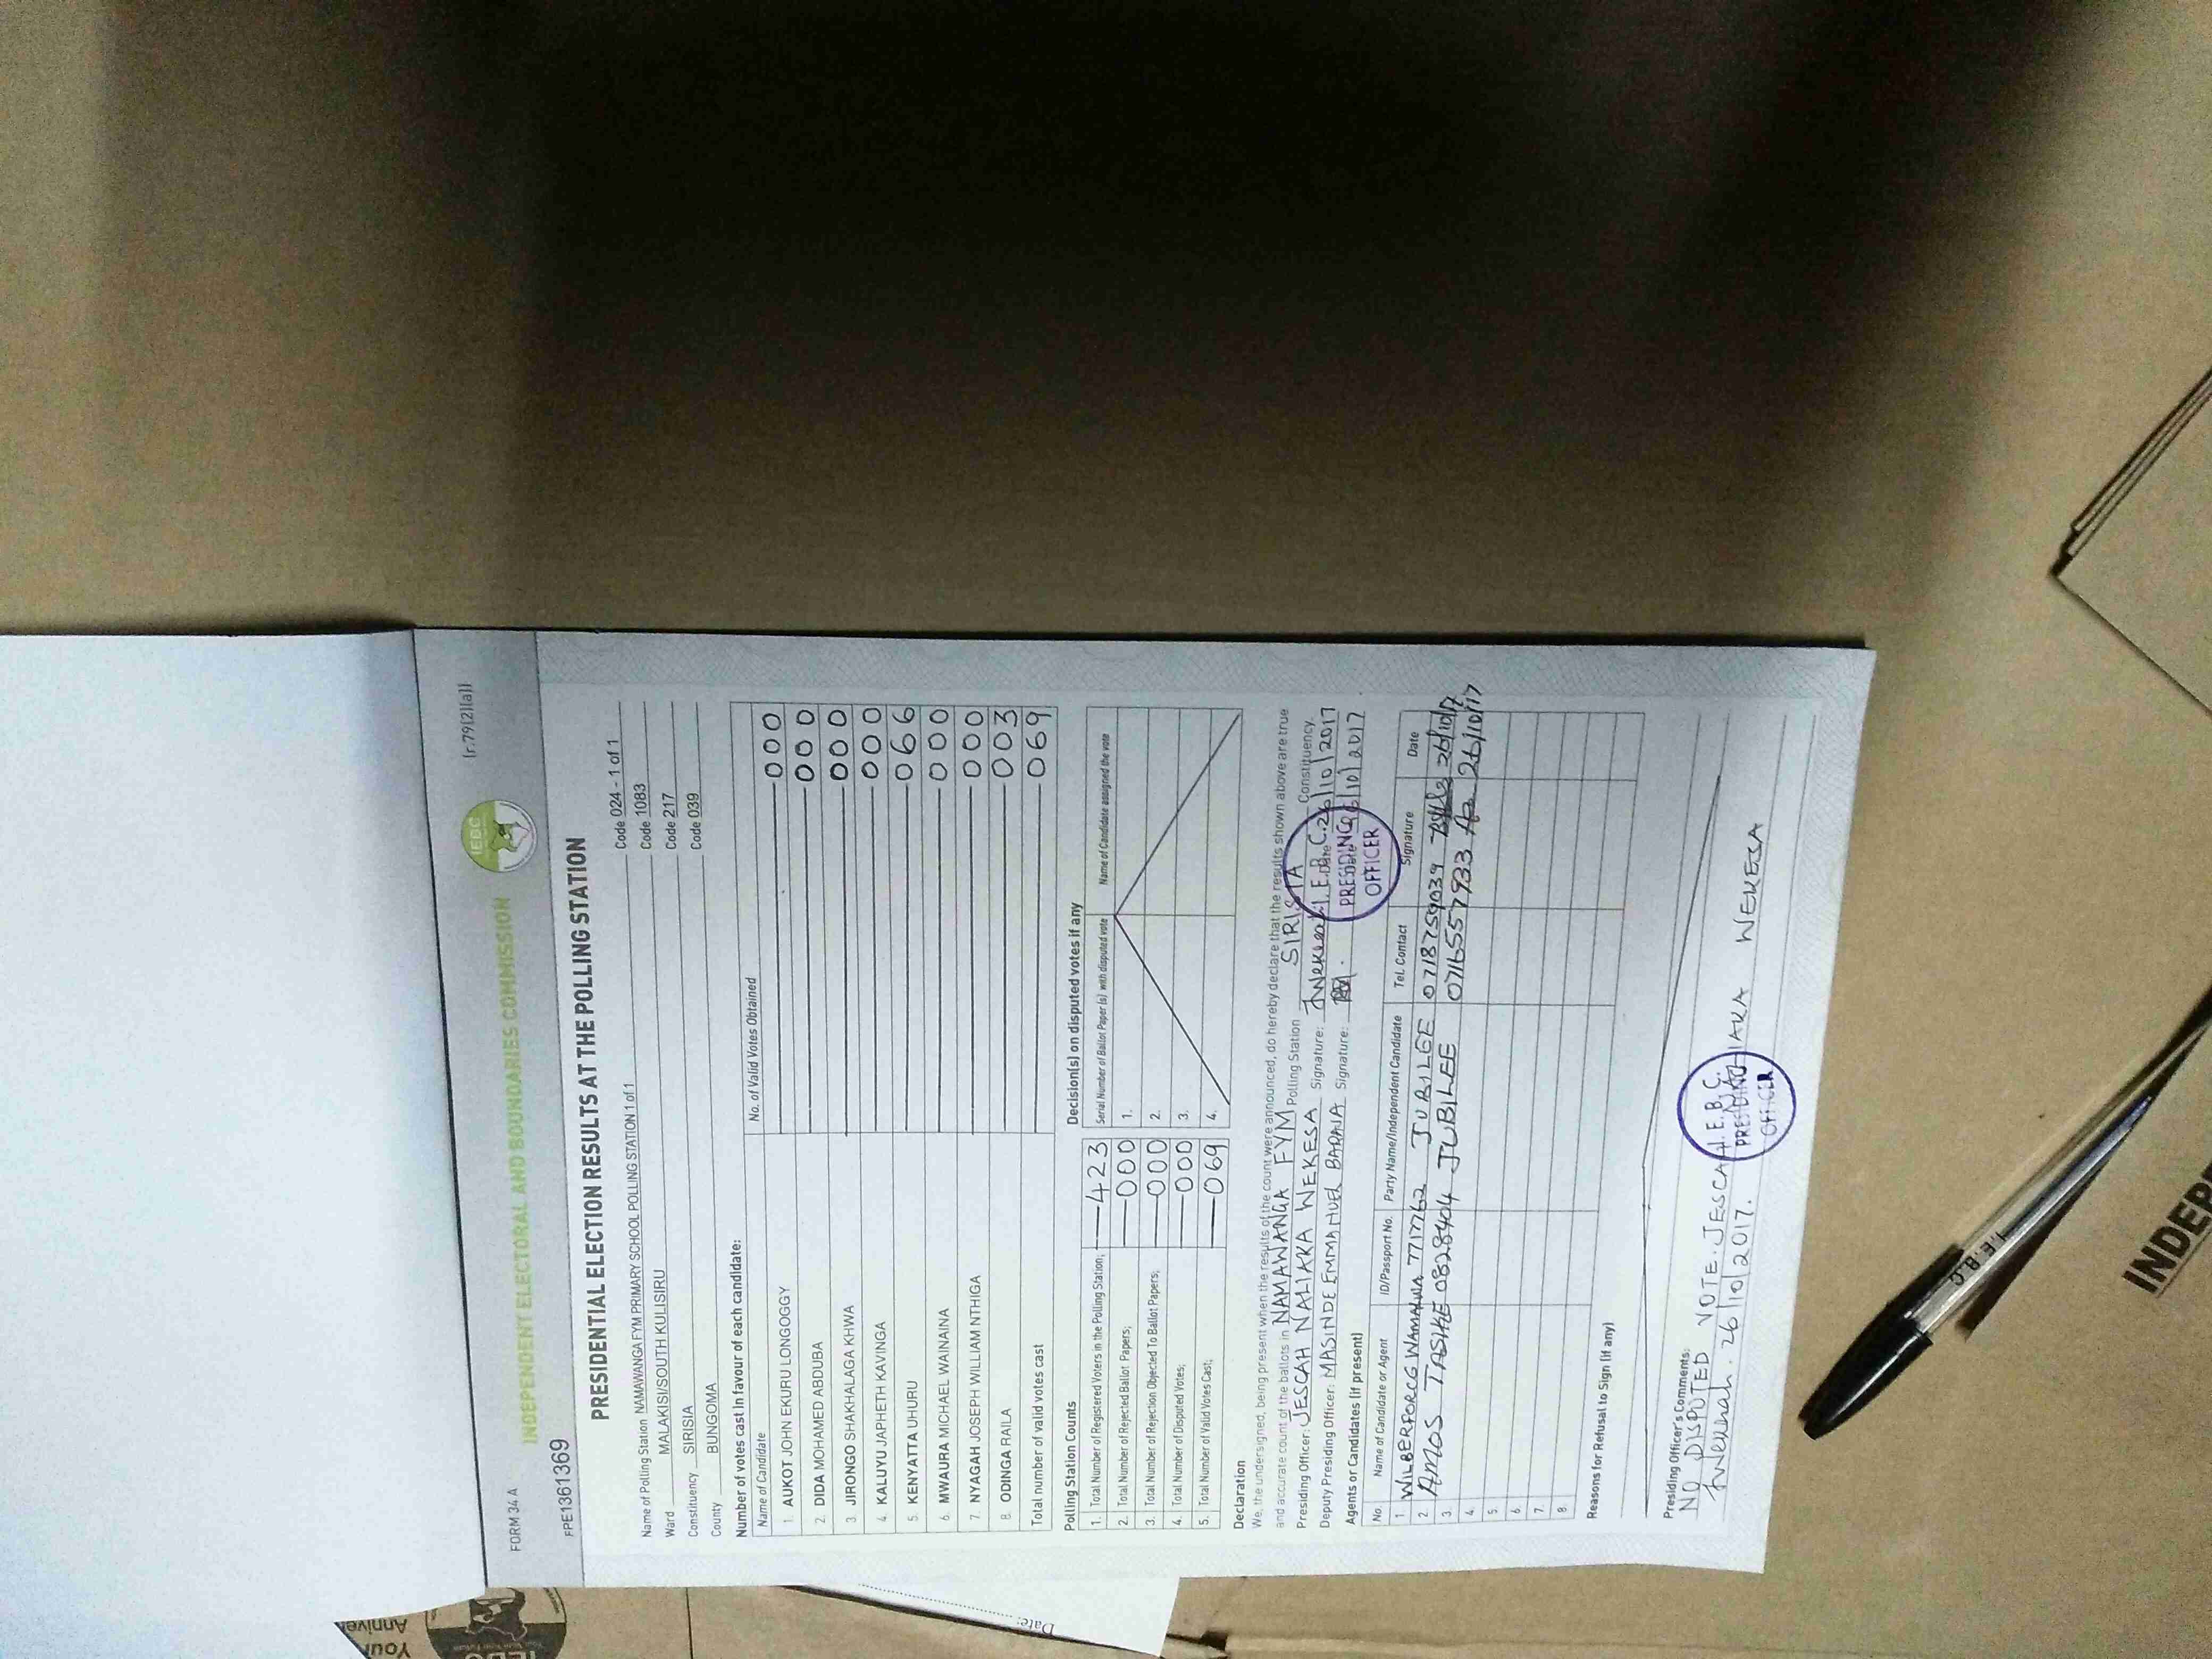 FORM 34 A
(r.79(2)(a))
IEBC
INDEPENDENT ELECTORAL AND BOUNDARIES COMMISSION
FPE1361369
PRESIDENTIAL ELECTION RESULTS AT THE POLLING STATION
Name of Polling Station NAMAWANGA FYM PRIMARY SCHOOL POLLING STATION 1 of 1 Code 024 - 1 of 1
Ward MALAKISI/SOUTH KULISIRU Code 1083
Constituency SIRISIA Code 217
County BUNGOMA Code 039
Number of votes cast in favour of each candidate:
Name of Candidate No. of Valid Votes Obtained
1. AUKOT JOHN EKURU LONGOGGY 000
2. DIDA MOHAMED ABDUBA 000
3. JIRONGO SHAKHALAGA KHWA 000
4. KALUYU JAPHETH KAVINGA 000
5. KENYATTA UHURU 066
6. MWAURA MICHAEL WAINAINA 000
7. NYAGAH JOSEPH WILLIAM NTHIGA 000
8. ODINGA RAILA 003
Total number of valid votes cast 069
Polling Station Counts
1. Total Number of Registered Voters in the Polling Station; 423
2. Total Number of Rejected Ballot Papers; 000
3. Total Number of Rejection Objected To Ballot Papers; 000
4. Total Number of Disputed Votes; 000
5. Total Number of Valid Votes Cast; 069
Decision(s) on disputed votes if any
Serial Number of Ballot Paper (s) with disputed vote Name of Candidate assigned the vote
1.
2.
3.
4.
Declaration
We, the undersigned, being present when the results of the count were announced, do hereby declare that the results shown above are true
and accurate count of the ballots in NAMAWANGA FYM Polling Station SIRISIA Constituency.
Presiding Officer: JESCAH NALIAKA WEKESA Signature: Date 26/10/2017
Deputy Presiding Officer: MASINDE EMMANUEL BARAJA Signature: Date 26/10/2017
I.E.B.C.
PRESIDING
OFFICER
Agents or Candidates (if present)
No. Name of Candidate or Agent ID/Passport No. Party Name/Independent Candidate Tel. Contact Signature Date
1 WILBERFORCE WAMALWA 7717762 JUBILEE 0718759039 26/10/17
2. AMOS TASIKE 0828404 JUBILEE 0716557933 26/10/17
3.
4.
5.
6
7.
8.
Reasons for Refusal to Sign (if any)
Presiding Officer's Comments:
NO DISPUTED VOTE. JESCAH NALIAKA WEKESA
26/10/2017.
I.E.B.C.
PRESIDING
OFFICER
I.E.B.C
INDEP
Date:
Your
Anniver